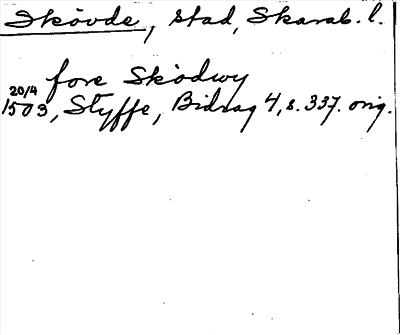 Skövde, stad, Skarab. l.
fore Skòdwy
20/4
1503, Styffe, Bidrag 4, s. 337. orig.